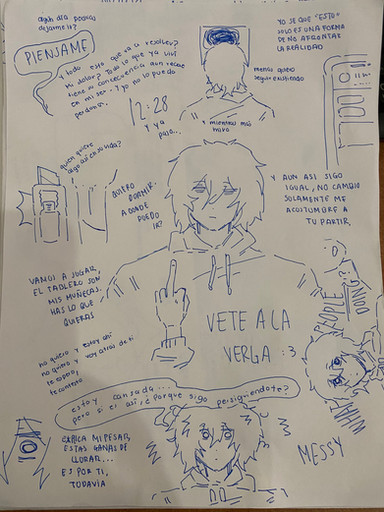 algún día podrás
dejarme ir?
PIENSAME
¿todo esto que va a resolver?
mi dolor? Todo lo que ya viví
tiene mi consecuencia aun recae
en mi ser. Y yo no lo puedo
perdonar.
12:28
Y ya
pasa..
YO SE QUE "ESTO"
SOLO ES UNA FORMA
DE NO AFRONTAR
LA REALIDAD
menos quiero
seguir existiendo
Y mientras más
miro
quien quiere
algo así en su vida?
QUIERO DORMIR,
A DONDE
PUEDO
IR?
Y AUN ASI SIGO
IGUAL, NO CAMBIO
SOLAMENTE ME
ACOSTUMBRE A
TU PARTIR.
VAMOS A JUGAR,
EL TABLERO SON
MIS MUÑECAS.
HAS LO QUE
QUIERAS
VETE A LA
VERGA :3
no quiero y estoy ahí
no quiero y voy atras de ti
te espero,
te contento
PEOPLE
WHAT
MESSY
estoy cansada...
pero si es así, ¿porque sigo persiguiendote?
MI PESAR,
ESTAS GANAS DE
LLORAR...
ES POR TI,
TODAVIA